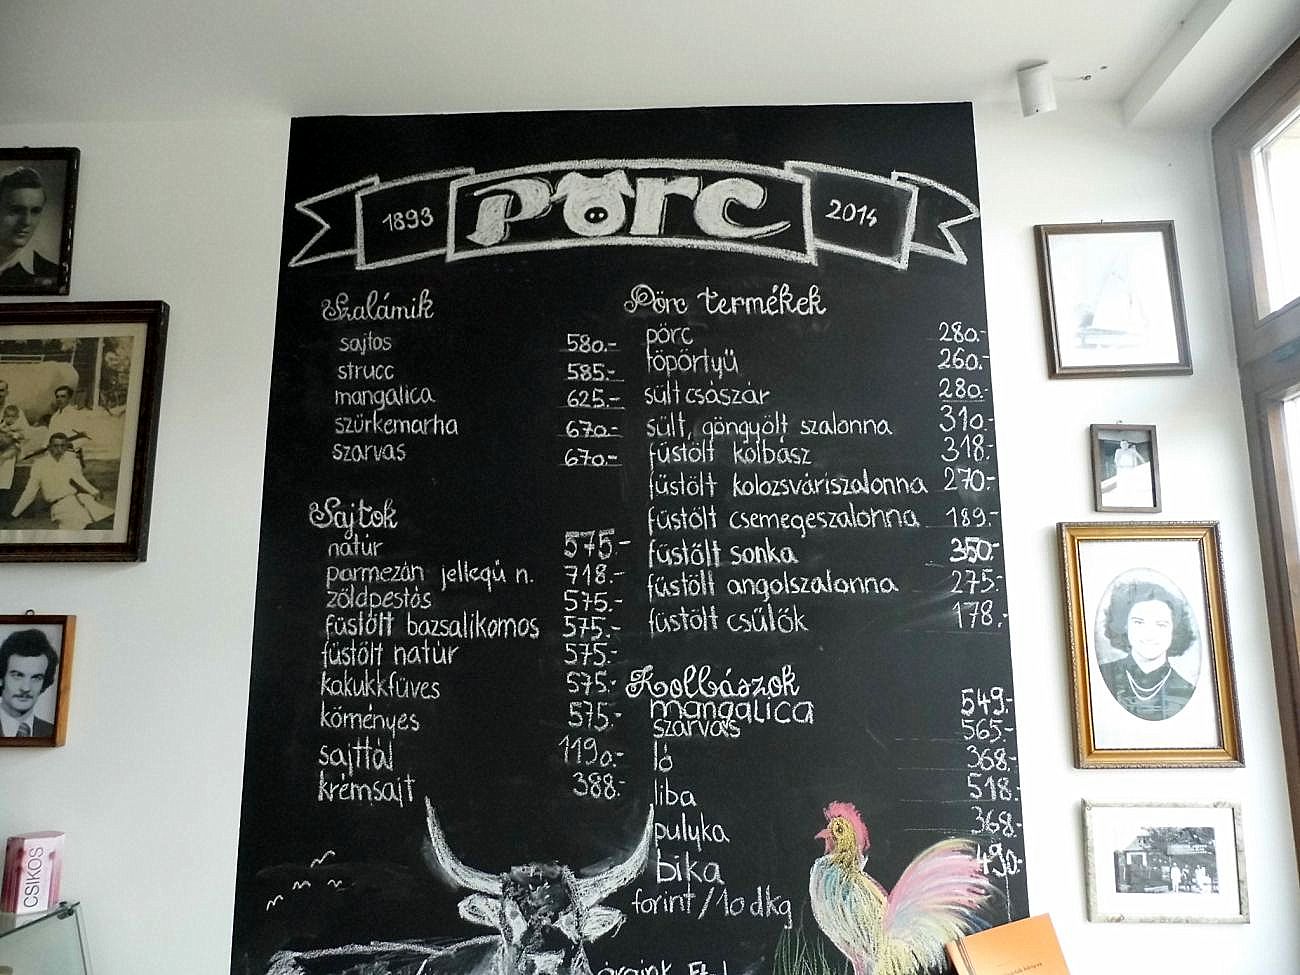 1893 pörc 2014
Szalámik
sajtos 580.-
strucc 585.-
mangalica 625.-
szürkemarha 670.-
szarvas 670.-
Sajtok
natúr 575.-
parmezán jellegű n. 718.-
zöldpestós 575.-
füstölt bazsalikomos 575.-
füstölt natúr 575.-
kakukkfüves 575.-
köményes 575.-
sajttál 1190.-
krémsajt 388.-
Pörc termékek
pörc 280.-
töpörtyű 260.-
sült császár 280.-
sült, göngyölt szalonna 310.-
füstölt kolbász 318.-
füstölt kolozsváriszalonna 270.-
füstölt csemegeszalonna 189.-
füstölt sonka 350.-
füstölt angolszalonna 275.-
füstölt csülök 178.-
Kolbászok
mangalica 549.-
szarvas 565.-
ló 368.-
liba 518.-
pulyka 368.-
bika 490.-
forint/10dkg
áraink Ft
CSIKOS